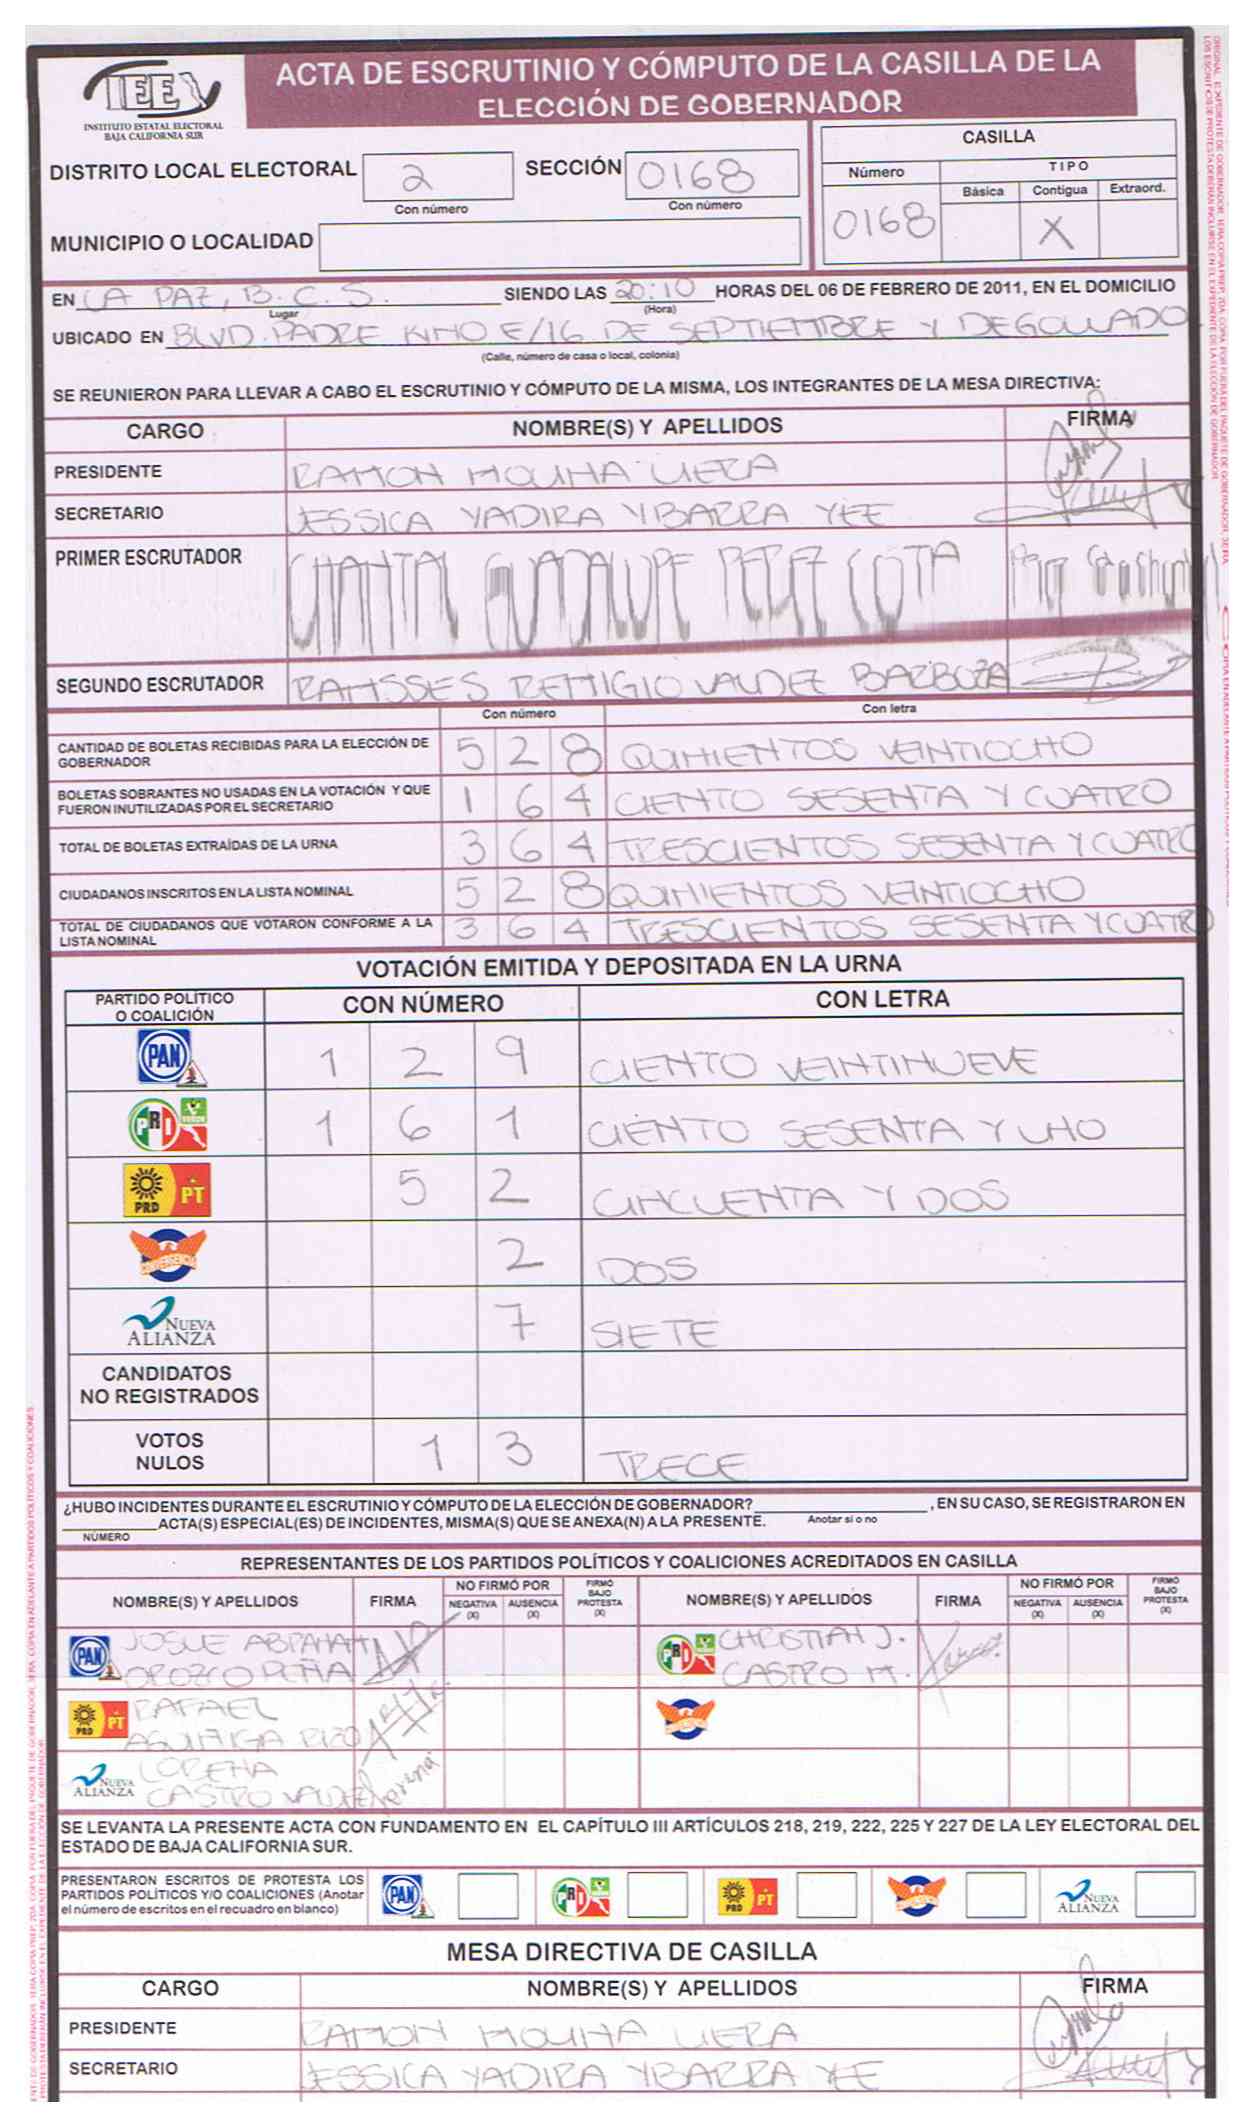 IEE
INSTITUTO ESTATAL ELECTORAL
BAJA CALIFORNIA SUR
ACTA DE ESCRUTINIO Y CÓMPUTO DE LA CASILLA DE LA
ELECCIÓN DE GOBERNADOR
DISTRITO LOCAL ELECTORAL 2 SECCIÓN 0168
Con número Con número
MUNICIPIO O LOCALIDAD
CASILLA
Número TIPO
Básica Contigua Extraord.
0168 X
EN LA PAZ, B.C.S. SIENDO LAS 20:10 HORAS DEL 06 DE FEBRERO DE 2011, EN EL DOMICILIO
Lugar (Hora)
UBICADO EN BLVD. PADRE KINO E/16 DE SEPTIEMBRE Y DEGOLLADO
(Calle, número de casa o local, colonia)
SE REUNIERON PARA LLEVAR A CABO EL ESCRUTINIO Y CÓMPUTO DE LA MISMA, LOS INTEGRANTES DE LA MESA DIRECTIVA:
CARGO NOMBRE(S) Y APELLIDOS FIRMA
PRESIDENTE RAMON MOLINA LIERA
SECRETARIO JESSICA YADIRA YBARRA YEE
PRIMER ESCRUTADOR CHANTAL GUADALUPE PEREZ COTA
SEGUNDO ESCRUTADOR RAMSSES REMIGIO VALDEZ BARBOZA
Con número Con letra
CANTIDAD DE BOLETAS RECIBIDAS PARA LA ELECCIÓN DE
GOBERNADOR 5 2 8 QUINIENTOS VEINTIOCHO
BOLETAS SOBRANTES NO USADAS EN LA VOTACIÓN Y QUE
FUERON INUTILIZADAS POR EL SECRETARIO 1 6 4 CIENTO SESENTA Y CUATRO
TOTAL DE BOLETAS EXTRAÍDAS DE LA URNA 3 6 4 TRESCIENTOS SESENTA Y CUATRO
CIUDADANOS INSCRITOS EN LA LISTA NOMINAL 5 2 8 QUINIENTOS VEINTIOCHO
TOTAL DE CIUDADANOS QUE VOTARON CONFORME A LA
LISTA NOMINAL 3 6 4 TRESCIENTOS SESENTA Y CUATRO
VOTACIÓN EMITIDA Y DEPOSITADA EN LA URNA
PARTIDO POLÍTICO
O COALICIÓN CON NÚMERO CON LETRA
PAN 1 2 9 CIENTO VEINTINUEVE
PRI VERDE 1 6 1 CIENTO SESENTA Y UNO
PRD PT 5 2 CINCUENTA Y DOS
CONVERGENCIA 2 DOS
NUEVA ALIANZA 7 SIETE
CANDIDATOS
NO REGISTRADOS
VOTOS
NULOS 1 3 TRECE
¿HUBO INCIDENTES DURANTE EL ESCRUTINIO Y CÓMPUTO DE LA ELECCIÓN DE GOBERNADOR? , EN SU CASO, SE REGISTRARON EN
ACTA(S) ESPECIAL(ES) DE INCIDENTES, MISMA(S) QUE SE ANEXA(N) A LA PRESENTE. Anotar si o no
NÚMERO
REPRESENTANTES DE LOS PARTIDOS POLÍTICOS Y COALICIONES ACREDITADOS EN CASILLA
NOMBRE(S) Y APELLIDOS FIRMA NO FIRMÓ POR NEGATIVA (X) AUSENCIA (X) FIRMÓ BAJO PROTESTA (X) NOMBRE(S) Y APELLIDOS FIRMA NO FIRMÓ POR NEGATIVA (X) AUSENCIA (X) FIRMÓ BAJO PROTESTA (X)
PAN JOSUE ABRAHAM
OROZCO PEÑA
PRI VERDE CHRISTIAN J.
CASTRO M.
PRD PT RAFAEL
AGUIÑIGA RIZO
CONVERGENCIA
NUEVA ALIANZA LORENA
CASTRO VALDEZ Lorena
SE LEVANTA LA PRESENTE ACTA CON FUNDAMENTO EN EL CAPÍTULO III ARTÍCULOS 218, 219, 222, 225 Y 227 DE LA LEY ELECTORAL DEL
ESTADO DE BAJA CALIFORNIA SUR.
PRESENTARON ESCRITOS DE PROTESTA LOS
PARTIDOS POLÍTICOS Y/O COALICIONES (Anotar
el número de escritos en el recuadro en blanco)
PAN PRI VERDE PRD PT CONVERGENCIA NUEVA ALIANZA
MESA DIRECTIVA DE CASILLA
CARGO NOMBRE(S) Y APELLIDOS FIRMA
PRESIDENTE RAMON MOLINA LIERA
SECRETARIO JESSICA YADIRA YBARRA YEE